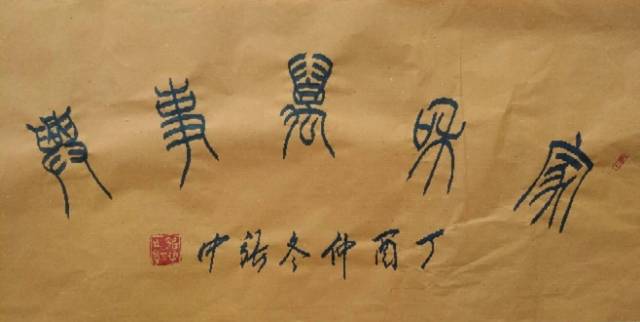 家和萬事興
丁酉仲冬中